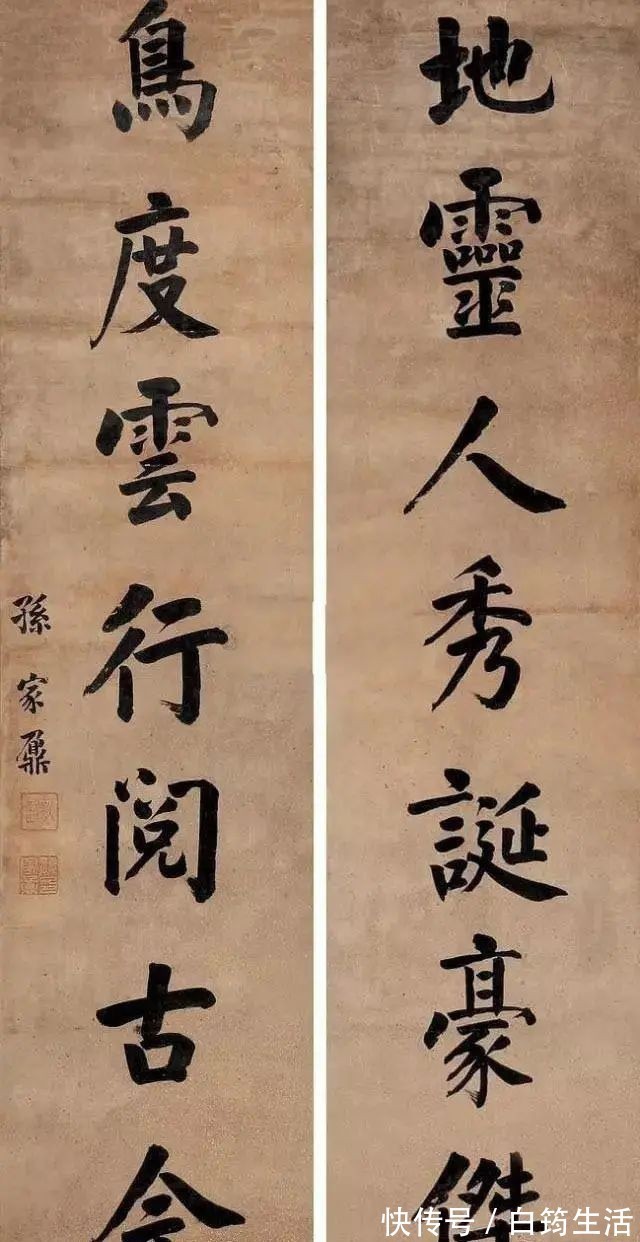 地靈人秀誕豪傑
鳥度雲行閱古今
孫家鼐
快传号/白筠生活